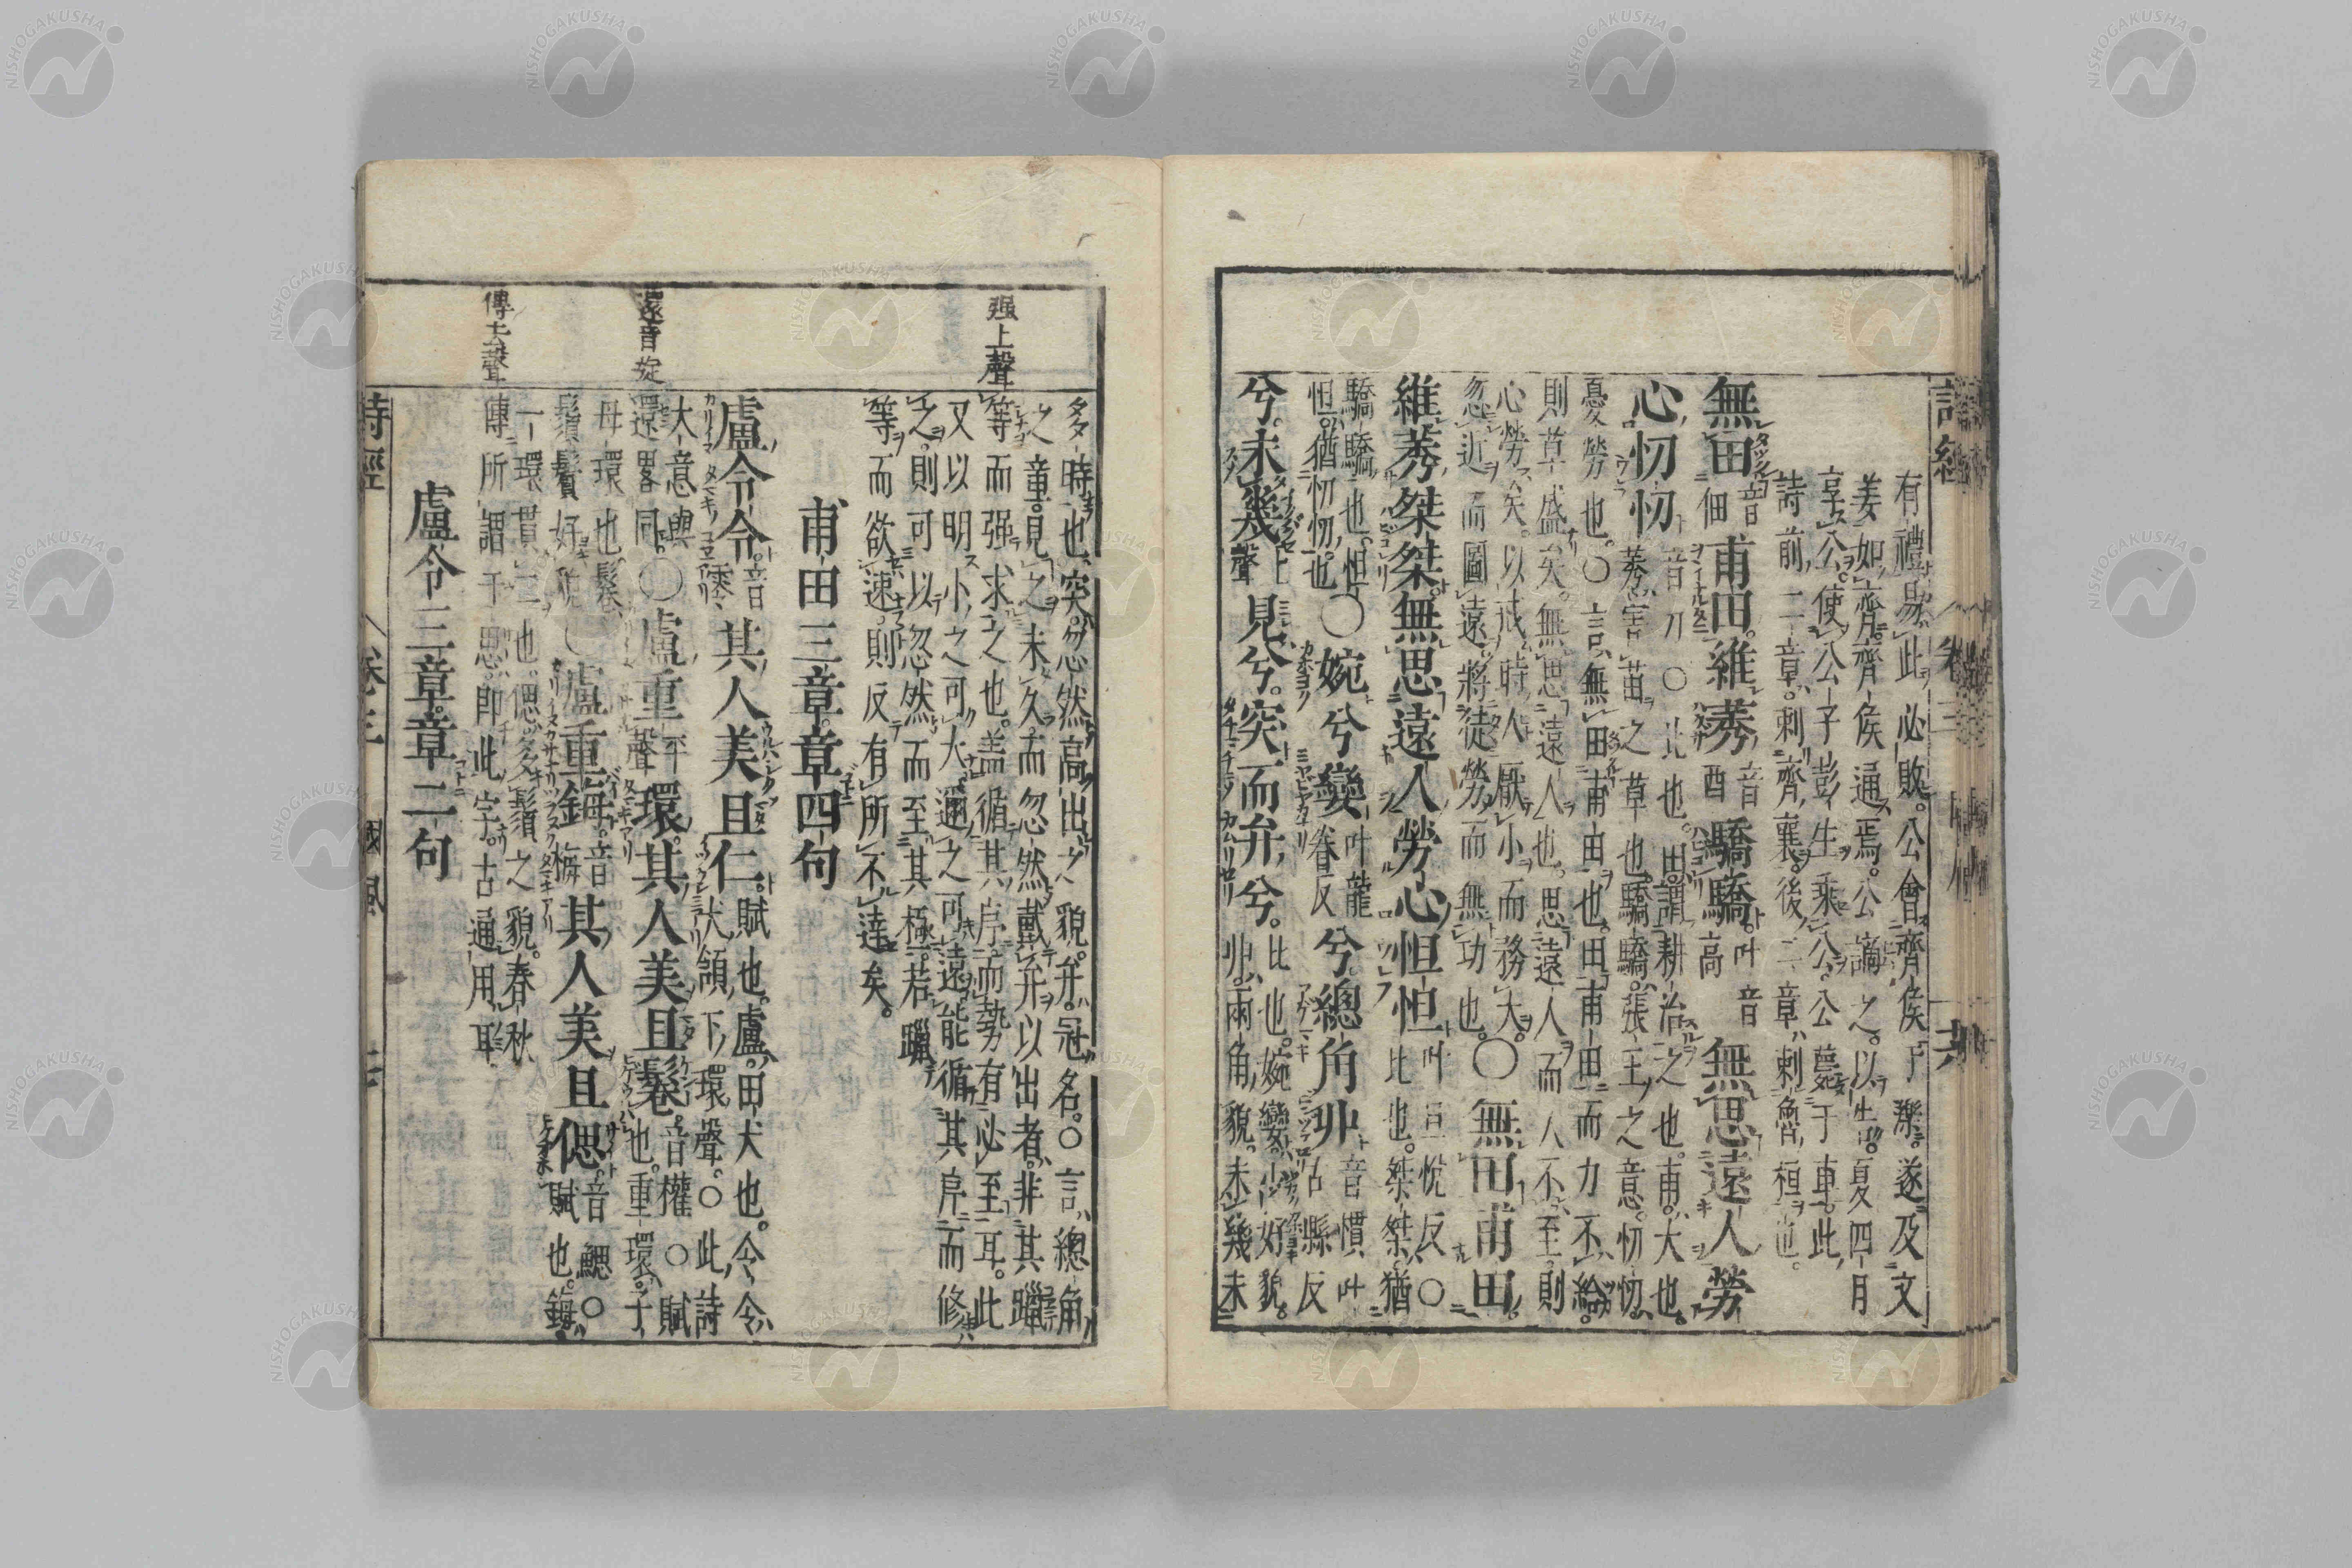 詩經 卷三 國風
有禮易此必敗公會齊侯于濼遂及文
姜如齊齊侯通焉公謫之以告夏四月
享公使公子彭生乘公公薨于車此
詩前二章刺齊襄後二章刺魯桓也
無田音佃甫田維莠音酉驕驕叶音高無思遠人勞
心忉忉音刀○比也田謂耕治之也甫大也
莠害苗之草也驕驕張王之意忉忉
憂勞也○言無田甫田也田甫田而力不給
則草盛矣無思遠人也思遠人而人不至則
心勞矣以戒時人厭小而務大
忽近而圖遠將徒勞而無功也○無田甫田
維莠桀桀無思遠人勞心怛怛叶旦悅反○比也桀桀猶
驕驕也怛怛猶忉忉也○婉兮孌叶龍眷反兮總角丱音慣叶古縣反
兮未幾上聲見兮突而弁兮比也婉孌少好貌
丱兩角貌未幾未
多時也突忽然高出之貌弁冠名○言總角
之童見之未久而忽然戴弁以出者非其躐
等而强求之也盖循其序而勢有必至耳此
又以明小之可大邇之可遠能循其序而修
之則可以忽然而至其極若躐
等而欲速則反有所不達矣
甫田三章章四句
盧令令音零其人美且仁賦也盧田犬也令令
犬頷下環聲○此詩
大意與還畧同○盧重平聲環其人美且鬈音權○賦也重環子
母環也鬈
鬚鬢好貌○盧重鋂音梅其人美且偲音鰓○賦也鋂
一環貫二也偲多鬚之貌春秋
傳所謂于思即此字古通用耳
盧令三章章二句
强上聲
還音旋
傳去聲
詩經 卷三 國風